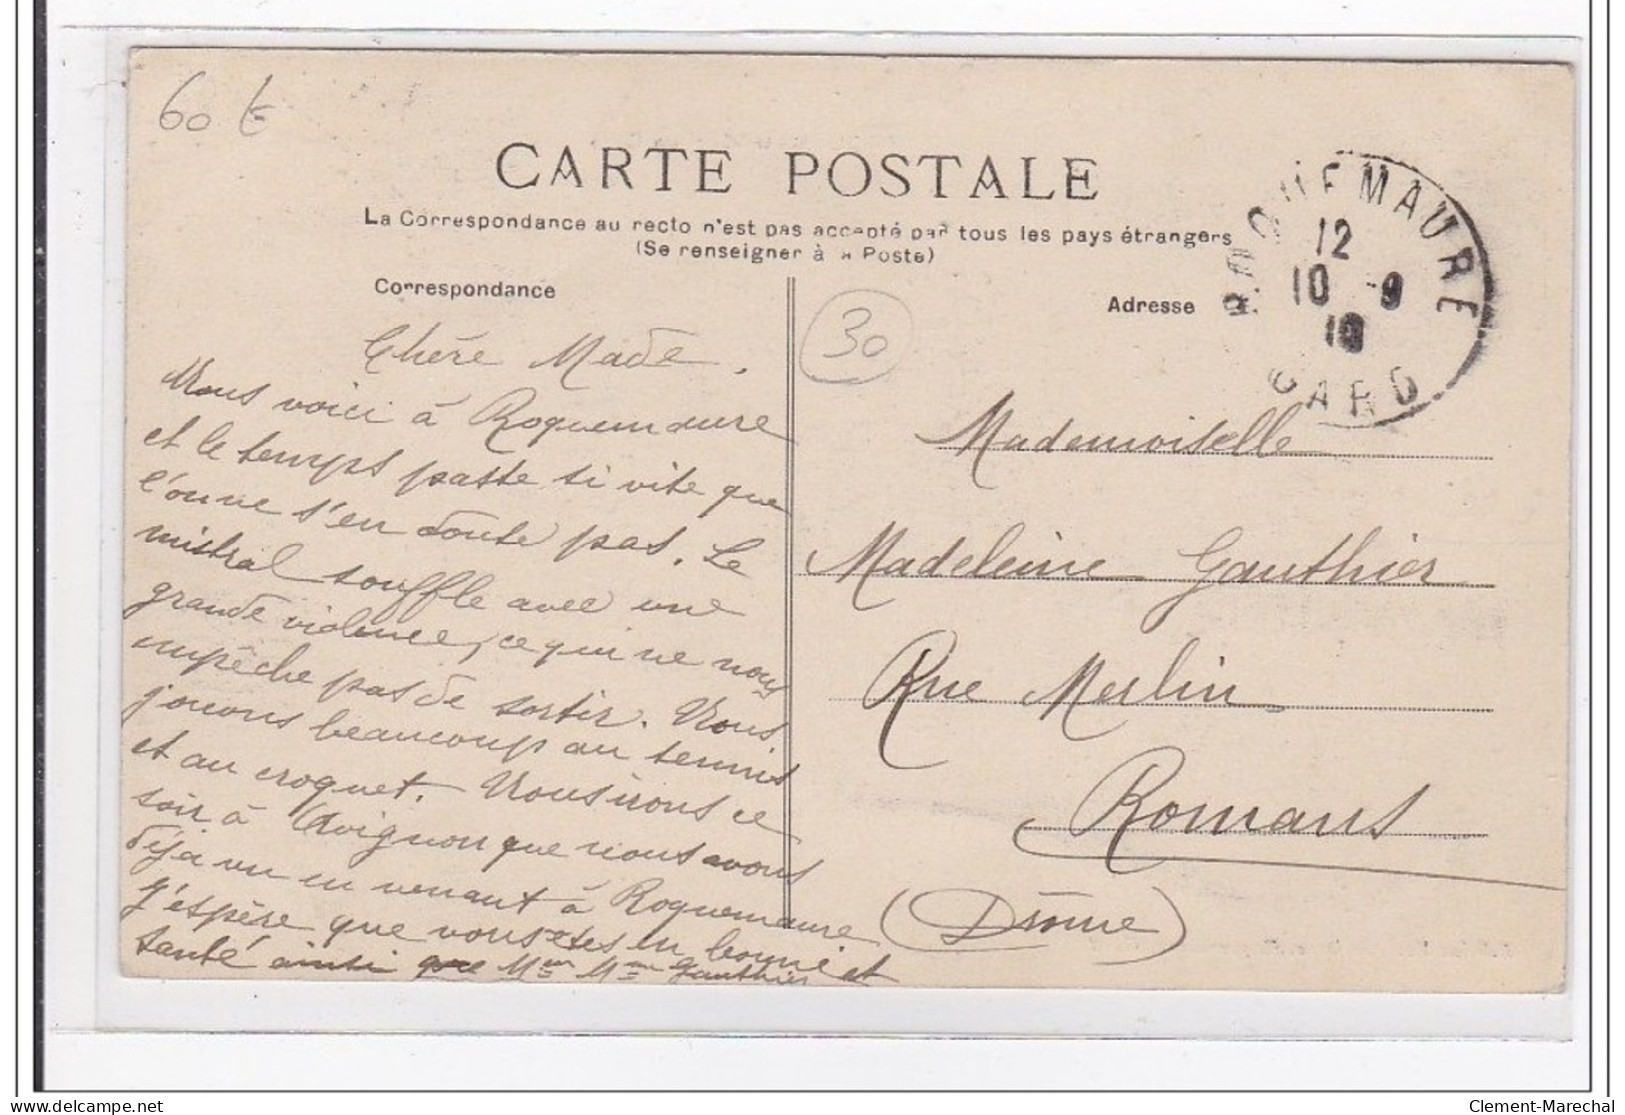 60 €
CARTE POSTALE
La Correspondance au recto n'est pas accepté par tous les pays étrangers
(Se renseigner à la Poste)
Correspondance
Adresse
30
ROQUEMAURE
12
10 -9
10
GARD
Chère Made.
Nous voici à Roquemaure
et le temps passe si vite que
l'on ne s'en doute pas. Le
mistral souffle avec une
grande violence, ce qui ne nous
empêche pas de sortir. Nous
jouons beaucoup au tennis
et au croquet. Nous irons ce
soir à Avignon que nous avons
déja vu en venant à Roquemaure
J'espère que vous êtes en bonne
santé ainsi que Mr et Mme Gauthier
Mademoiselle
Madeleine Gauthier
Rue Merlin
Romans
(Drôme)
Clement-Marechal